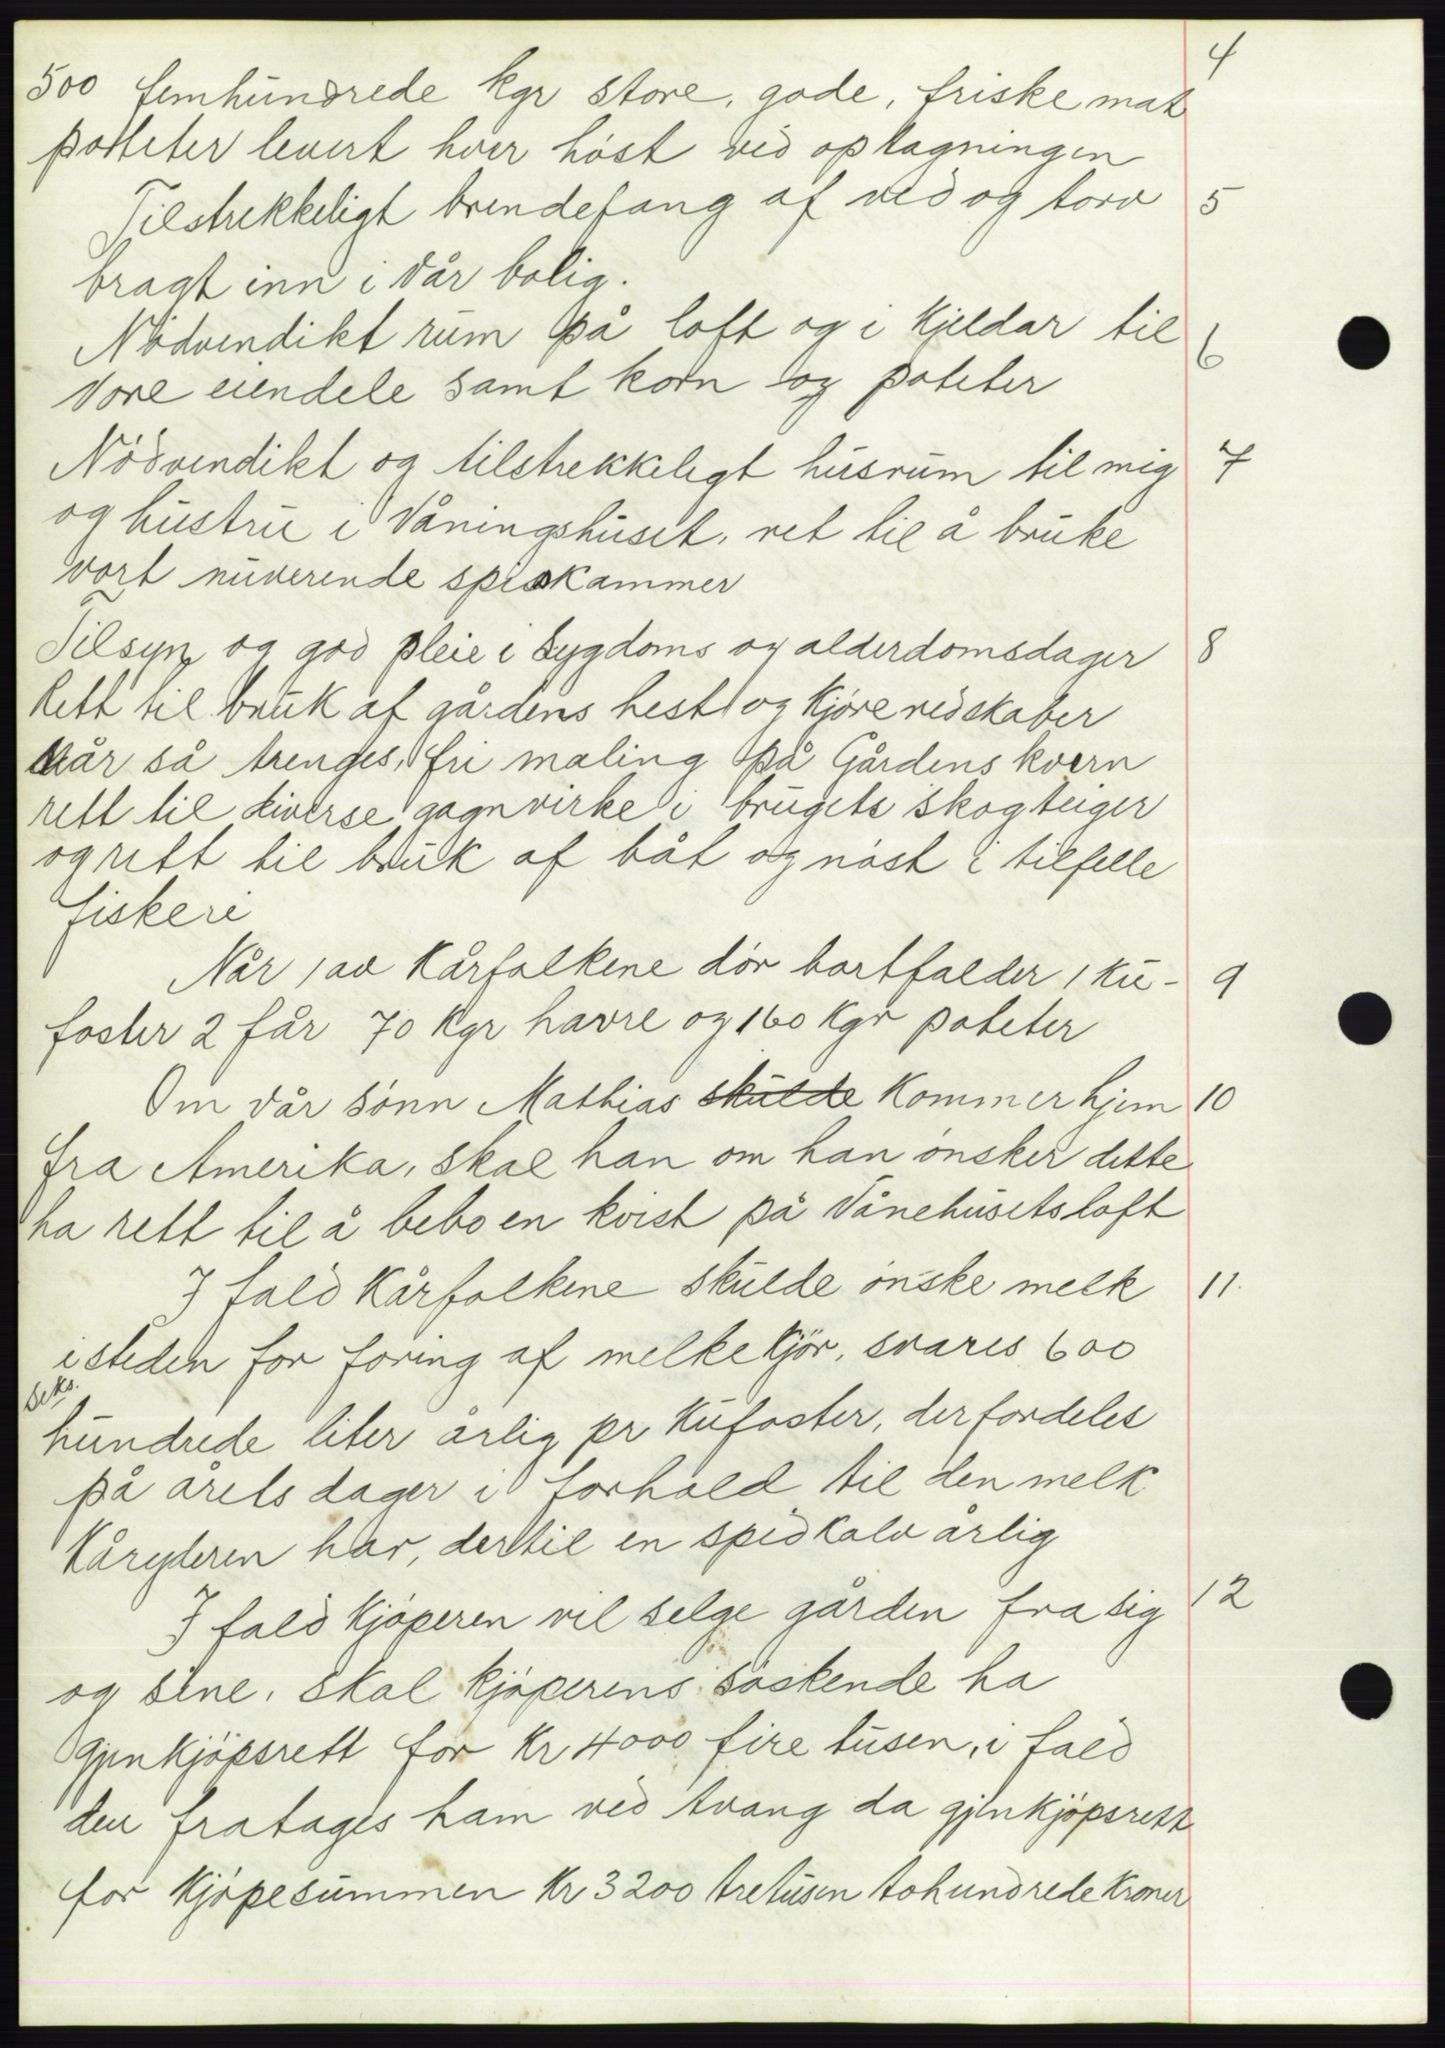 500 femhundrede kgr store, gode, friske mat 4
poteter levert hver høst ved optagningen
Tilstrekkeligt brendefang af ved og torv 5
bragt inn i vår bolig.
Nødvendikt rum på loft og i kjeldar til 6
vore eiendele samt korn og poteter
Nødvendikt og tilstrekkeligt husrum til mig 7
og hustru i våningshuset, ret til å bruke
vort nuverende spiskammer
Tilsyn og god pleie i sygdoms og alderdomsdager 8
Rett til bruk af gårdens hest og kjøreredskaber
når så trenges, fri maling på Gårdens kvern
rett til diverse gagnvirke i brugets skogteiger
og rett til bruk af båt og nøst i tilfelle
fiskeri
Når 1 av Kårfolkene dør bortfalder 1 ku- 9
foster 2 får 70 kgr havre og 160 kgr poteter
Om vår sønn Mathias skulde kommer hjem 10
fra Amerika, skal han om han ønsker dette
ha rett til å bebo en kvist på Vånehusets loft
I fald Kårfolkene skulde ønske melk 11.
i steden for foring af melkekjør, svares 600
seks.
hundrede liter årlig pr Kufoster, der fordeles
på årets dager i forhold til den melk
Kåryderen har, dertil en spedkalv årlig
I fald kjøperen vil selge gården fra sig 12
og sine, skal kjøperens søskende ha
gjenkjøpsrett for Kr 4000 fire tusen, i fald
den fratages ham ved tvang da gjenkjøpsrett
for kjøpesummen Kr 3200 tretusen tohundrede kroner